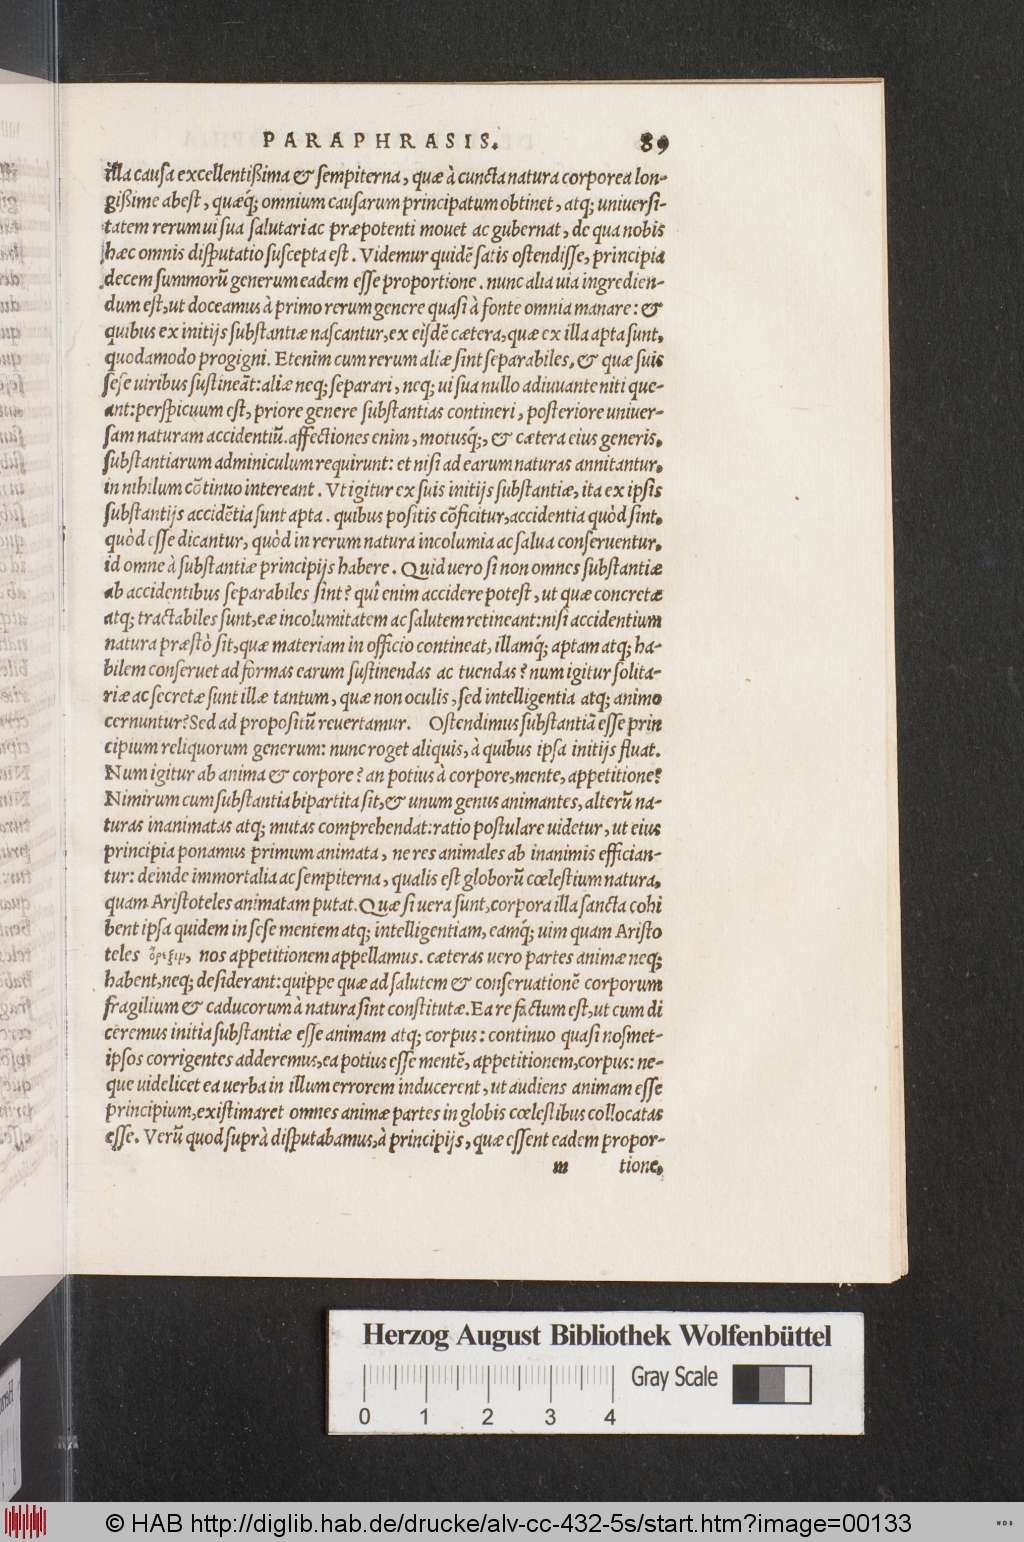 PARAPHRASIS. 89
illa causa excellentißima & sempiterna, quæ à cuncta natura corporea lon-
gißime abest, quæq́; omnium causarum principatum obtinet, atq; uniuersi-
tatem rerum ui sua salutari ac præpotenti mouet ac gubernat, de qua nobis
hæc omnis disputatio suscepta est. Videmur quidē satis ostendisse, principia
decem summorū generum eadem esse proportione. nunc alia uia ingredien-
dum est, ut doceamus à primo rerum genere quasi à fonte omnia manare: &
quibus ex initijs substantiæ nascantur, ex eisdē cætera, quæ ex illa apta sunt,
quodamodo progigni. Etenim cum rerum aliæ sint separabiles, & quæ suis
sese uiribus sustineāt: aliæ neq; separari, neq; ui sua nullo adiuuante niti que-
ant: perspicuum est, priore genere substantias contineri, posteriore uniuer-
sam naturam accidentiū. affectiones enim, motusq́;, & cætera eius generis,
substantiarum adminiculum requirunt: et nisi ad earum naturas annitantur,
in nihilum cōtinuo intereant. Vt igitur ex suis initijs substantiæ, ita ex ipsis
substantijs accidētia sunt apta. quibus positis cōficitur, accidentia quòd sint,
quòd esse dicantur, quòd in rerum natura incolumia ac salua conseruentur,
id omne à substantiæ principijs habere. Quid uero si non omnes substantiæ
ab accidentibus separabiles sint? quî enim accidere potest, ut quæ concretæ
atq; tractabiles sunt, eæ incolumitatem ac salutem retineant: nisi accidentium
natura præstò sit, quæ materiam in officio contineat, illamq́; aptam atq; ha-
bilem conseruet ad formas earum sustinendas ac tuendas? num igitur solita-
riæ ac secretæ sunt illæ tantum, quæ non oculis, sed intelligentia atq; animo
cernuntur? Sed ad propositū reuertamur. Ostendimus substantiā esse prin
cipium reliquorum generum: nunc roget aliquis, à quibus ipsa initijs fluat.
Num igitur ab anima & corpore? an potius à corpore, mente, appetitione?
Nimirum cum substantia bipartita sit, & unum genus animantes, alterū na-
turas inanimatas atq; mutas comprehendat: ratio postulare uidetur, ut eius
principia ponamus primum animata, ne res animales ab inanimis effician-
tur: deinde immortalia ac sempiterna, qualis est globorū cœlestium natura,
quam Aristoteles animatam putat. Quæ si uera sunt, corpora illa sancta cohi
bent ipsa quidem in sese mentem atq; intelligentiam, eamq́; uim quam Aristo
teles ὄρεξιν, nos appetitionem appellamus. cæteras uero partes animæ neq;
habent, neq; desiderant: quippe quæ ad salutem & conseruationē corporum
fragilium & caducorum à natura sint constitutæ. Ea re factum est, ut cum di
ceremus initia substantiæ esse animam atq; corpus: continuo quasi nosmet-
ipsos corrigentes adderemus, ea potius esse mentē, appetitionem, corpus: ne-
que uidelicet ea uerba in illum errorem inducerent, ut audiens animam esse
principium, existimaret omnes animæ partes in globis cœlestibus collocatas
esse. Verū quod suprà disputabamus, à principijs, quæ essent eadem propor-
m tione,
Herzog August Bibliothek Wolfenbüttel
Gray Scale
0 1 2 3 4
© HAB http://diglib.hab.de/drucke/alv-cc-432-5s/start.htm?image=00133